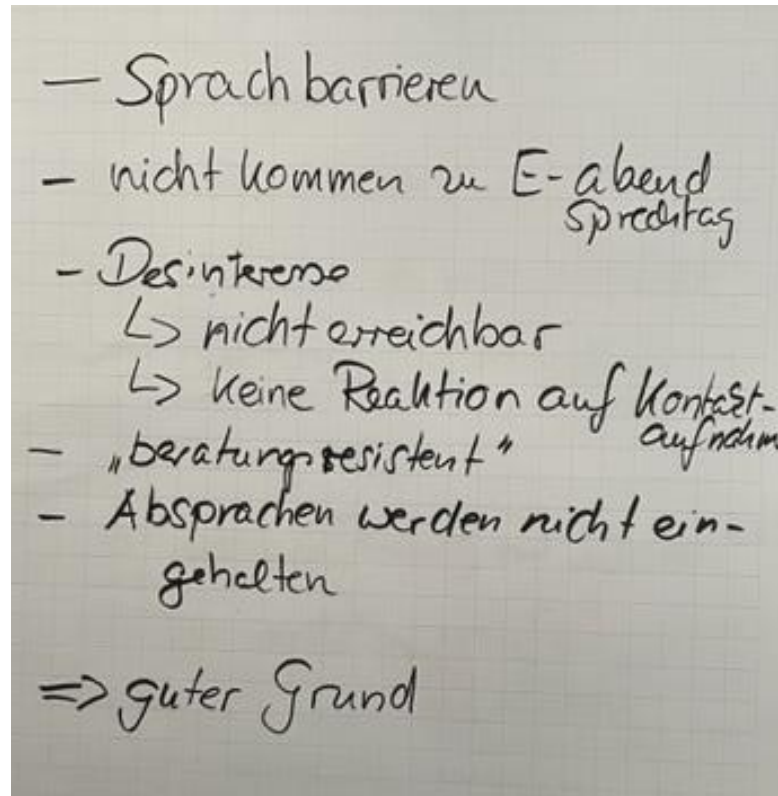 — Sprachbarrieren
- nicht kommen zu E-abend
sprechtag
- Desinteresse
↳ nicht erreichbar
↳ keine Reaktion auf Kontakt-
aufnahm
- „beratungsresistent"
- Absprachen werden nicht ein-
gehalten
=> guter Grund